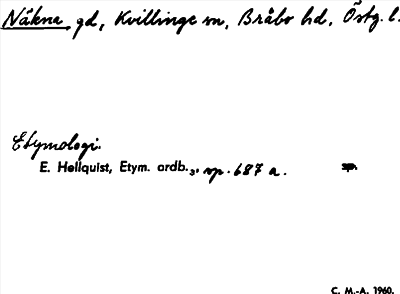 Näkna, gd, Kvillinge sn, Bråbo hd, Östg. l.
Etymologi.
E. Hellquist, Etym. ordb.3, sp. 687 a.
C. M.-A. 1960.